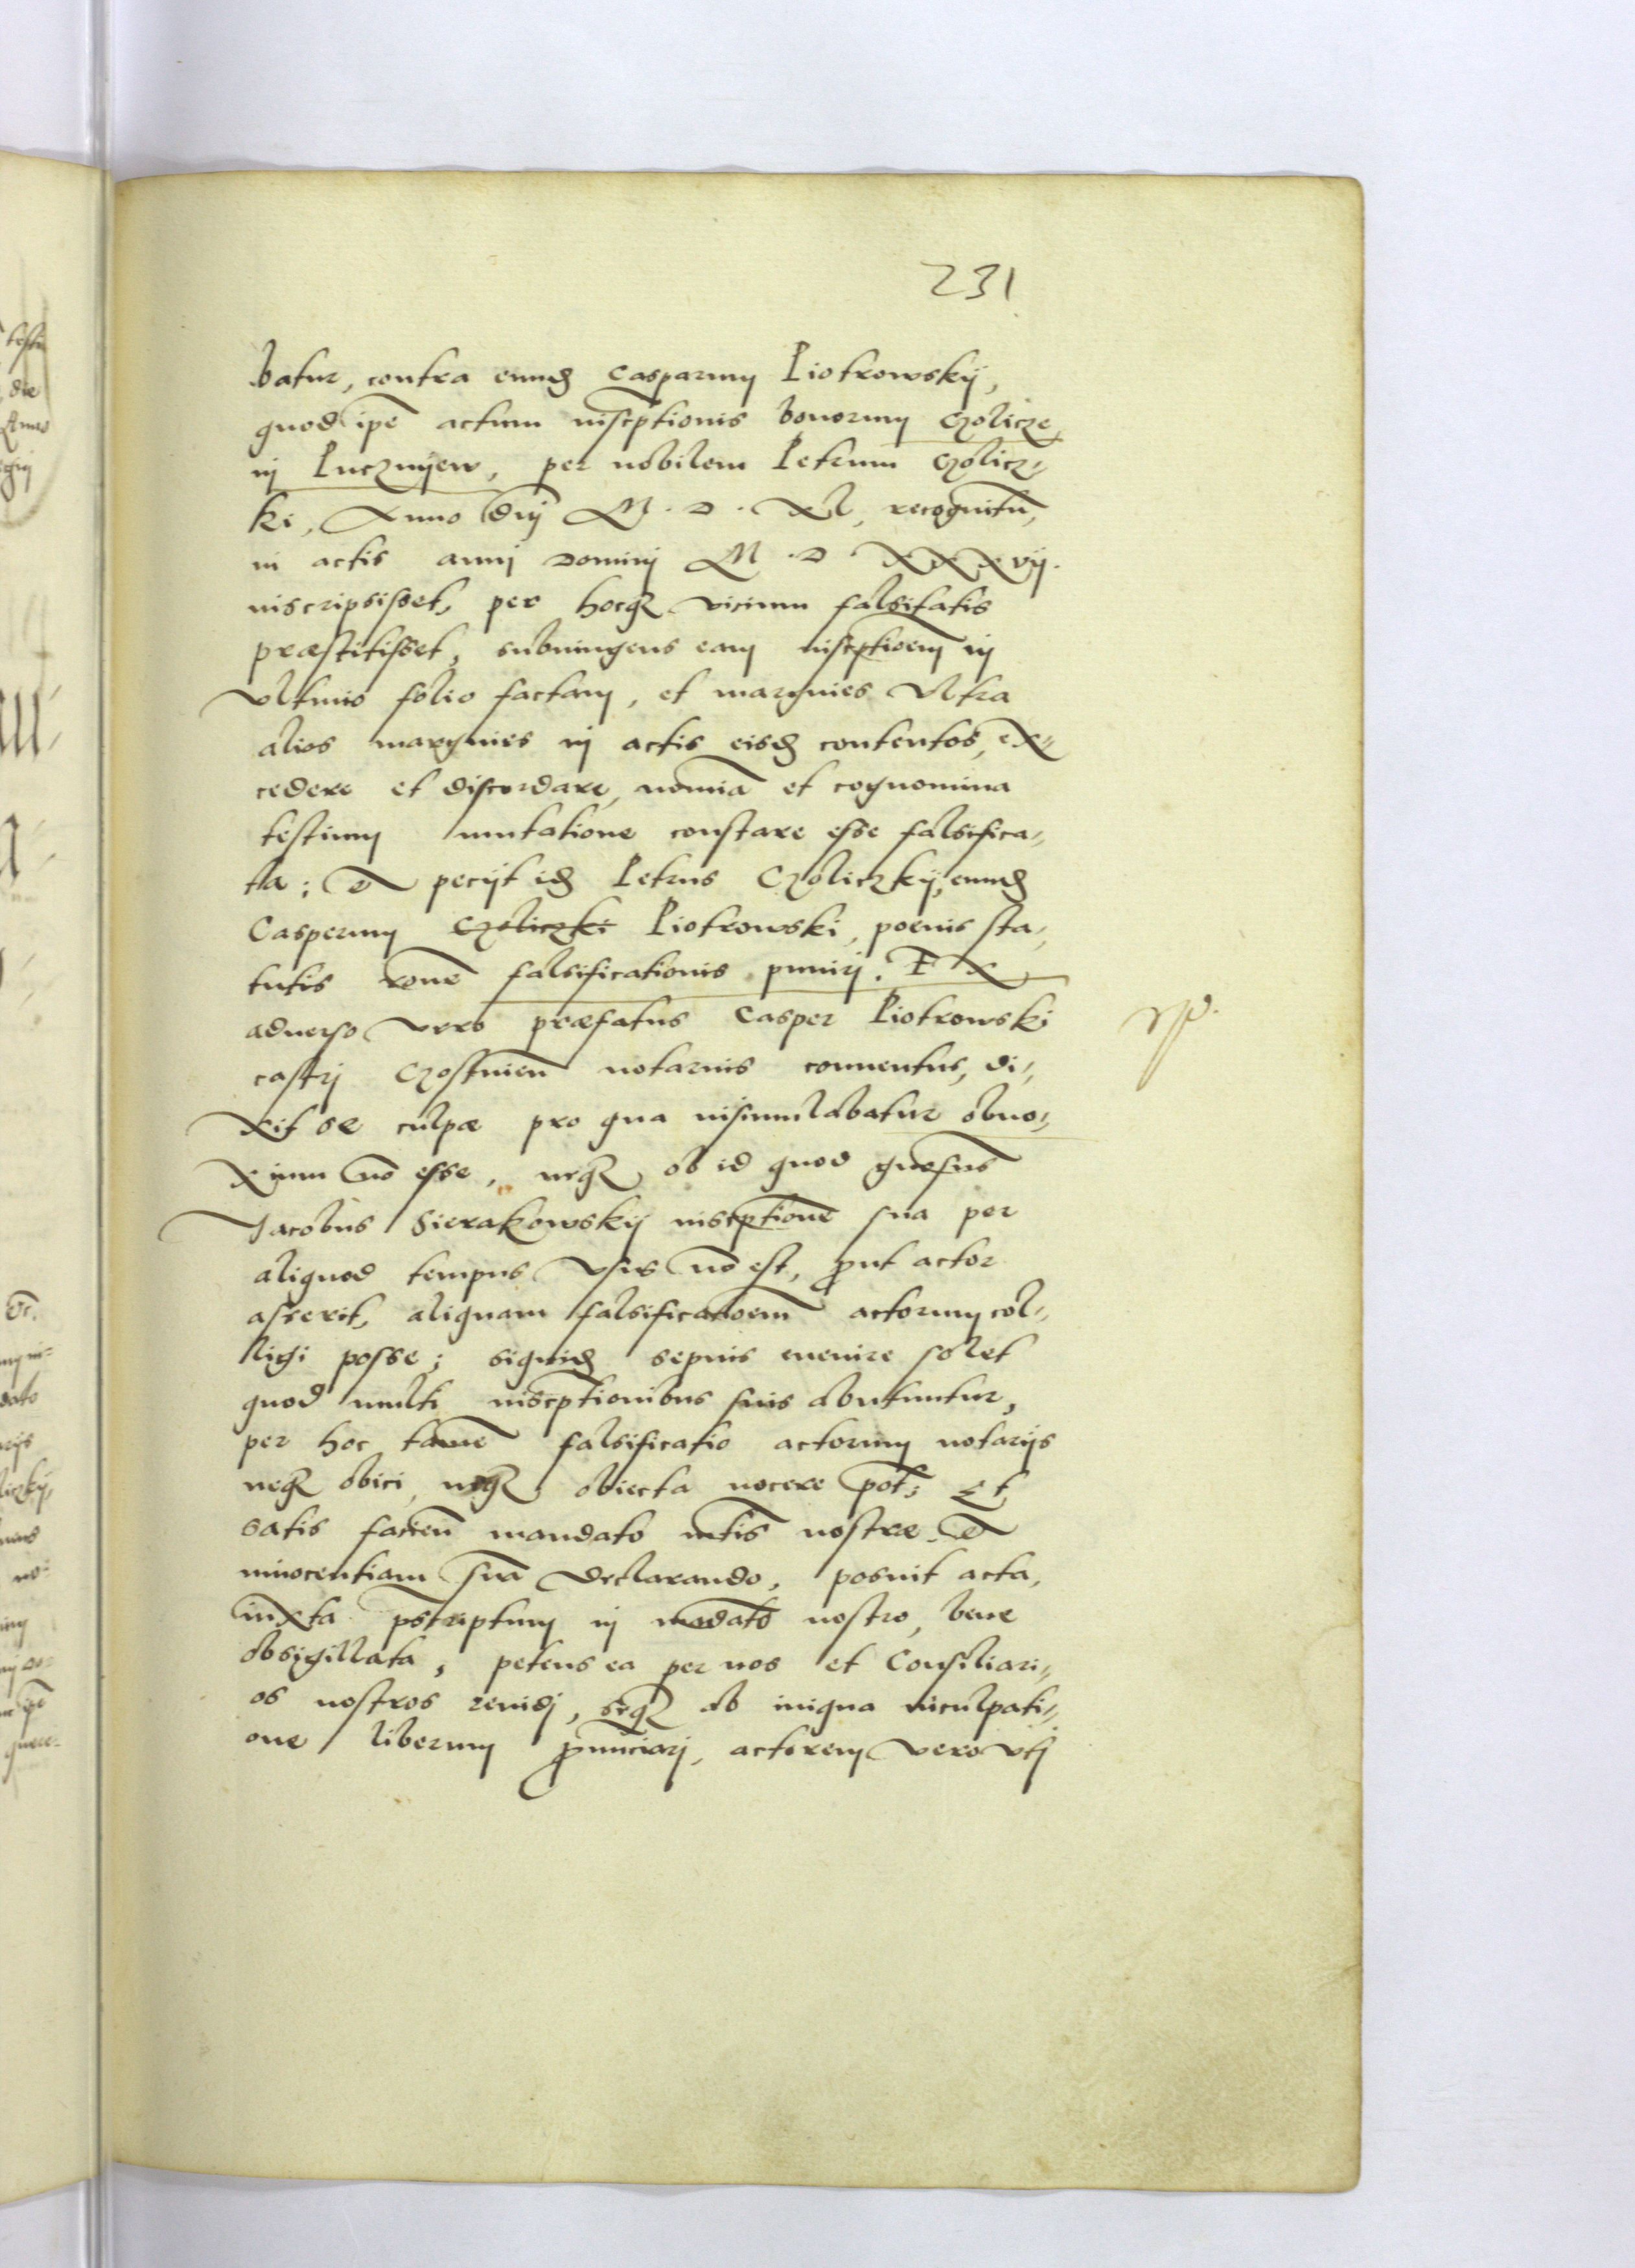 231
batur, contra eund Casparum Piotrowskij,
quod ipe actum inscptionis bonorum Czolicze
in Lucznijew, per nobilem Petrum Czolicz-
ki, Anno Dnj M. D. XL, recognitu,
in actis annj Dominj M. D XXXvij.
inscripsisset, per hocq vicium falsitatis
præstitisset, subiungens eam inscptioem in
Vltimo folio factam, et margines Vltra
alios margines in actis eisd contentos, ex-
cedere et discordare, nomina et cognomina
testium mutatione constare esse falsifica-
ta; Et pecijt id Petrus Czoliczkij, eund
Casperum Czoliczki Piotrowski, poenis sta-
tutis rone falsificationis puniri. EX
aduerso vero præfatus Casper Piotrowski
castrj Czostnien notarius conuentus, di-
xit se culpæ pro qua insimulabatur obno-
xium no esse, neq ob id quod gnosus
Jacobus Sierakowskij inscptione sua per
aliquod tempus vsus no est, put actor
asserit, aliquam falsificationem actorum col-
ligi posse; siquid sepius euenire solet
quod multi inscptionibus suis abutuntur,
per hoc tame falsificatio actorum notarijs
neq obici, neq obiecta nocere pot; Et
satis facien mandato mtis nostræ Et
innocentiam sua declarando, posuit acta,
iuxta pscriptum in madato nostro, bene
obsigillata, petens ea per nos et Consiliari-
os nostros reuidj, seq ab iniqua inculpati-
one liberum pnunciarj, actorem vero vtj